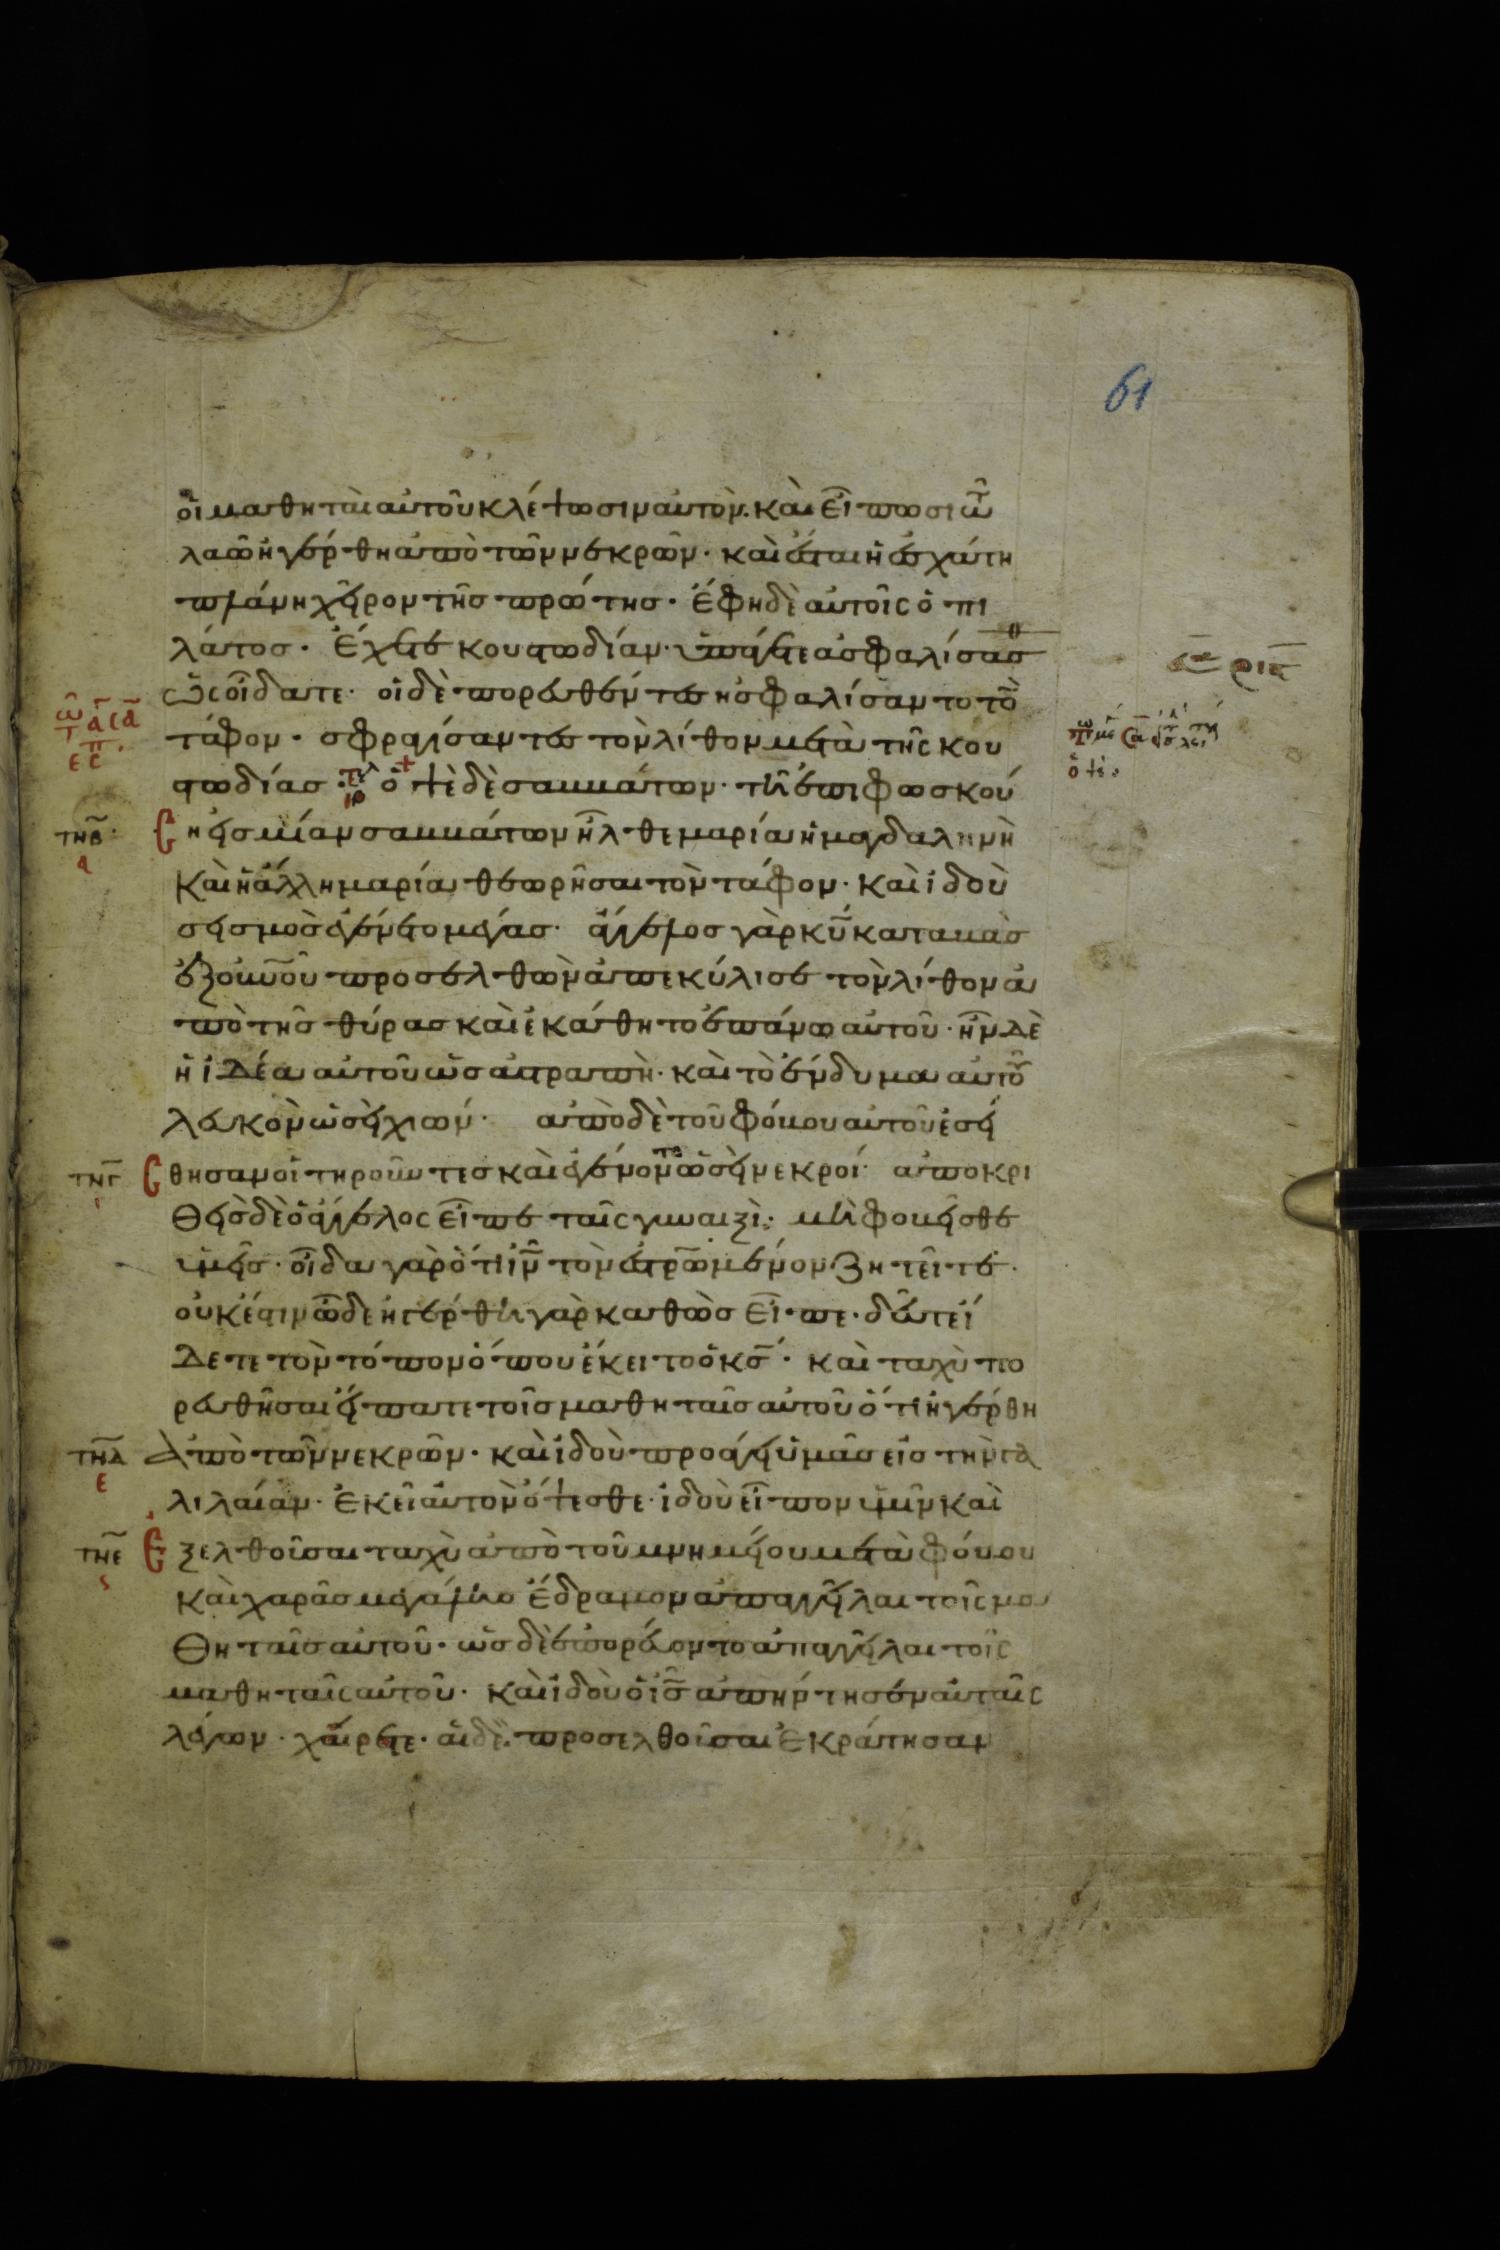 61
οἱ μαθηταὶ αὐτοῦ κλέψωσιν αὐτὸν. καὶ εἴπωσι τῶ
λαῶ ἠγέρθη ἀπὸ τῶν νεκρῶν· καὶ ἔσται ἡ ἐσχάτη
πλάνη χεῖρον τῆς πρώτης· ἔφη δὲ αὐτοῖς ὁ πι
λάτος· ἔχετε κουστωδίαν· ὑπάγετε ἀσφαλίσασθ
ὡς οἴδατε· οἱ δὲ πορευθέντες ἠσφαλίσαντο τὸ
τάφον· σφραγίσαντες τὸν λίθον μετὰ τῆς κου
στωδίας· ὀψὲ δὲ σαββάτων· τῆ ἐπιφωσκού
τνβ
ση εἰς μίαν σαββάτων ἦλθε μαρία ἡ μαγδαληνὴ
καὶ ἡ ἄλλη μαρία θεωρῆσαι τὸν τάφον· καὶ ἰδοὺ
σεισμὸς ἐγένετο μέγας· ἄγγελος γὰρ κ̅υ̅ καταβὰς
ἐξ ο̅υ̅ν̅ο̅ῦ̅ προσελθὼν ἀπεκύλισε τὸν λίθον ἀ
πὸ τῆς θύρας καὶ ἐκάθητο ἐπάνω αὐτοῦ· ἦν δὲ
ἡ ἰδέα αὐτοῦ ὡς ἀστραπὴ· καὶ τὸ ἔνδυμα αὐτοῦ
λευκὸν ὡσεὶ χιών· ἀπὸ δὲ τοῦ φόβου αὐτοῦ ἐσεί
τνγ
σθησαν οἱ τηροῦντες καὶ ἐγένοντο ὡσεὶ νεκροί· ἀποκρι
θεὶς δὲ ὁ ἄγγελος εἶπε ταῖς γυναιξὶ· μὴ φοβεῖσθε
ὑμεῖς· οἶδα γὰρ ὅτι ι̅ν̅ τὸν ἐστρωμένον ζητεῖτε·
οὐκ ἔστιν ὧδε ἠγέρθη γὰρ καθὼς εἶπε· δεῦτε ἴ
δετε τὸν τόπον ὅπου ἔκειτο ὁ κ̅ς̅· καὶ ταχὺ πο
ρευθεῖσαι εἴπατε τοῖς μαθηταῖς αὐτοῦ ὅτι ἠγέρθη
τνδ
ἀπὸ τῶν νεκρῶν· καὶ ἰδοὺ προάγει ὑμᾶς εἰς τὴν γα
λιλαίαν· ἐκεῖ αὐτὸν ὄψεσθε· ἰδοὺ εἶπον ὑμῖν καὶ
τνε
ἐξελθοῦσαι ταχὺ ἀπὸ τοῦ μνημείου μετὰ φόβου
καὶ χαρᾶς μεγάλης ἔδραμον ἀπαγγεῖλαι τοῖς μα
θηταῖς αὐτοῦ· ὡς δὲ ἐπορεύοντο ἀπαγγεῖλαι τοῖς
μαθηταῖς αὐτοῦ· καὶ ἰδοὺ ὁ ι̅ς̅ ἀπήντησεν αὐταῖς
λέγων· χαίρετε· αἱ δὲ προσελθοῦσαι ἐκράτησαν